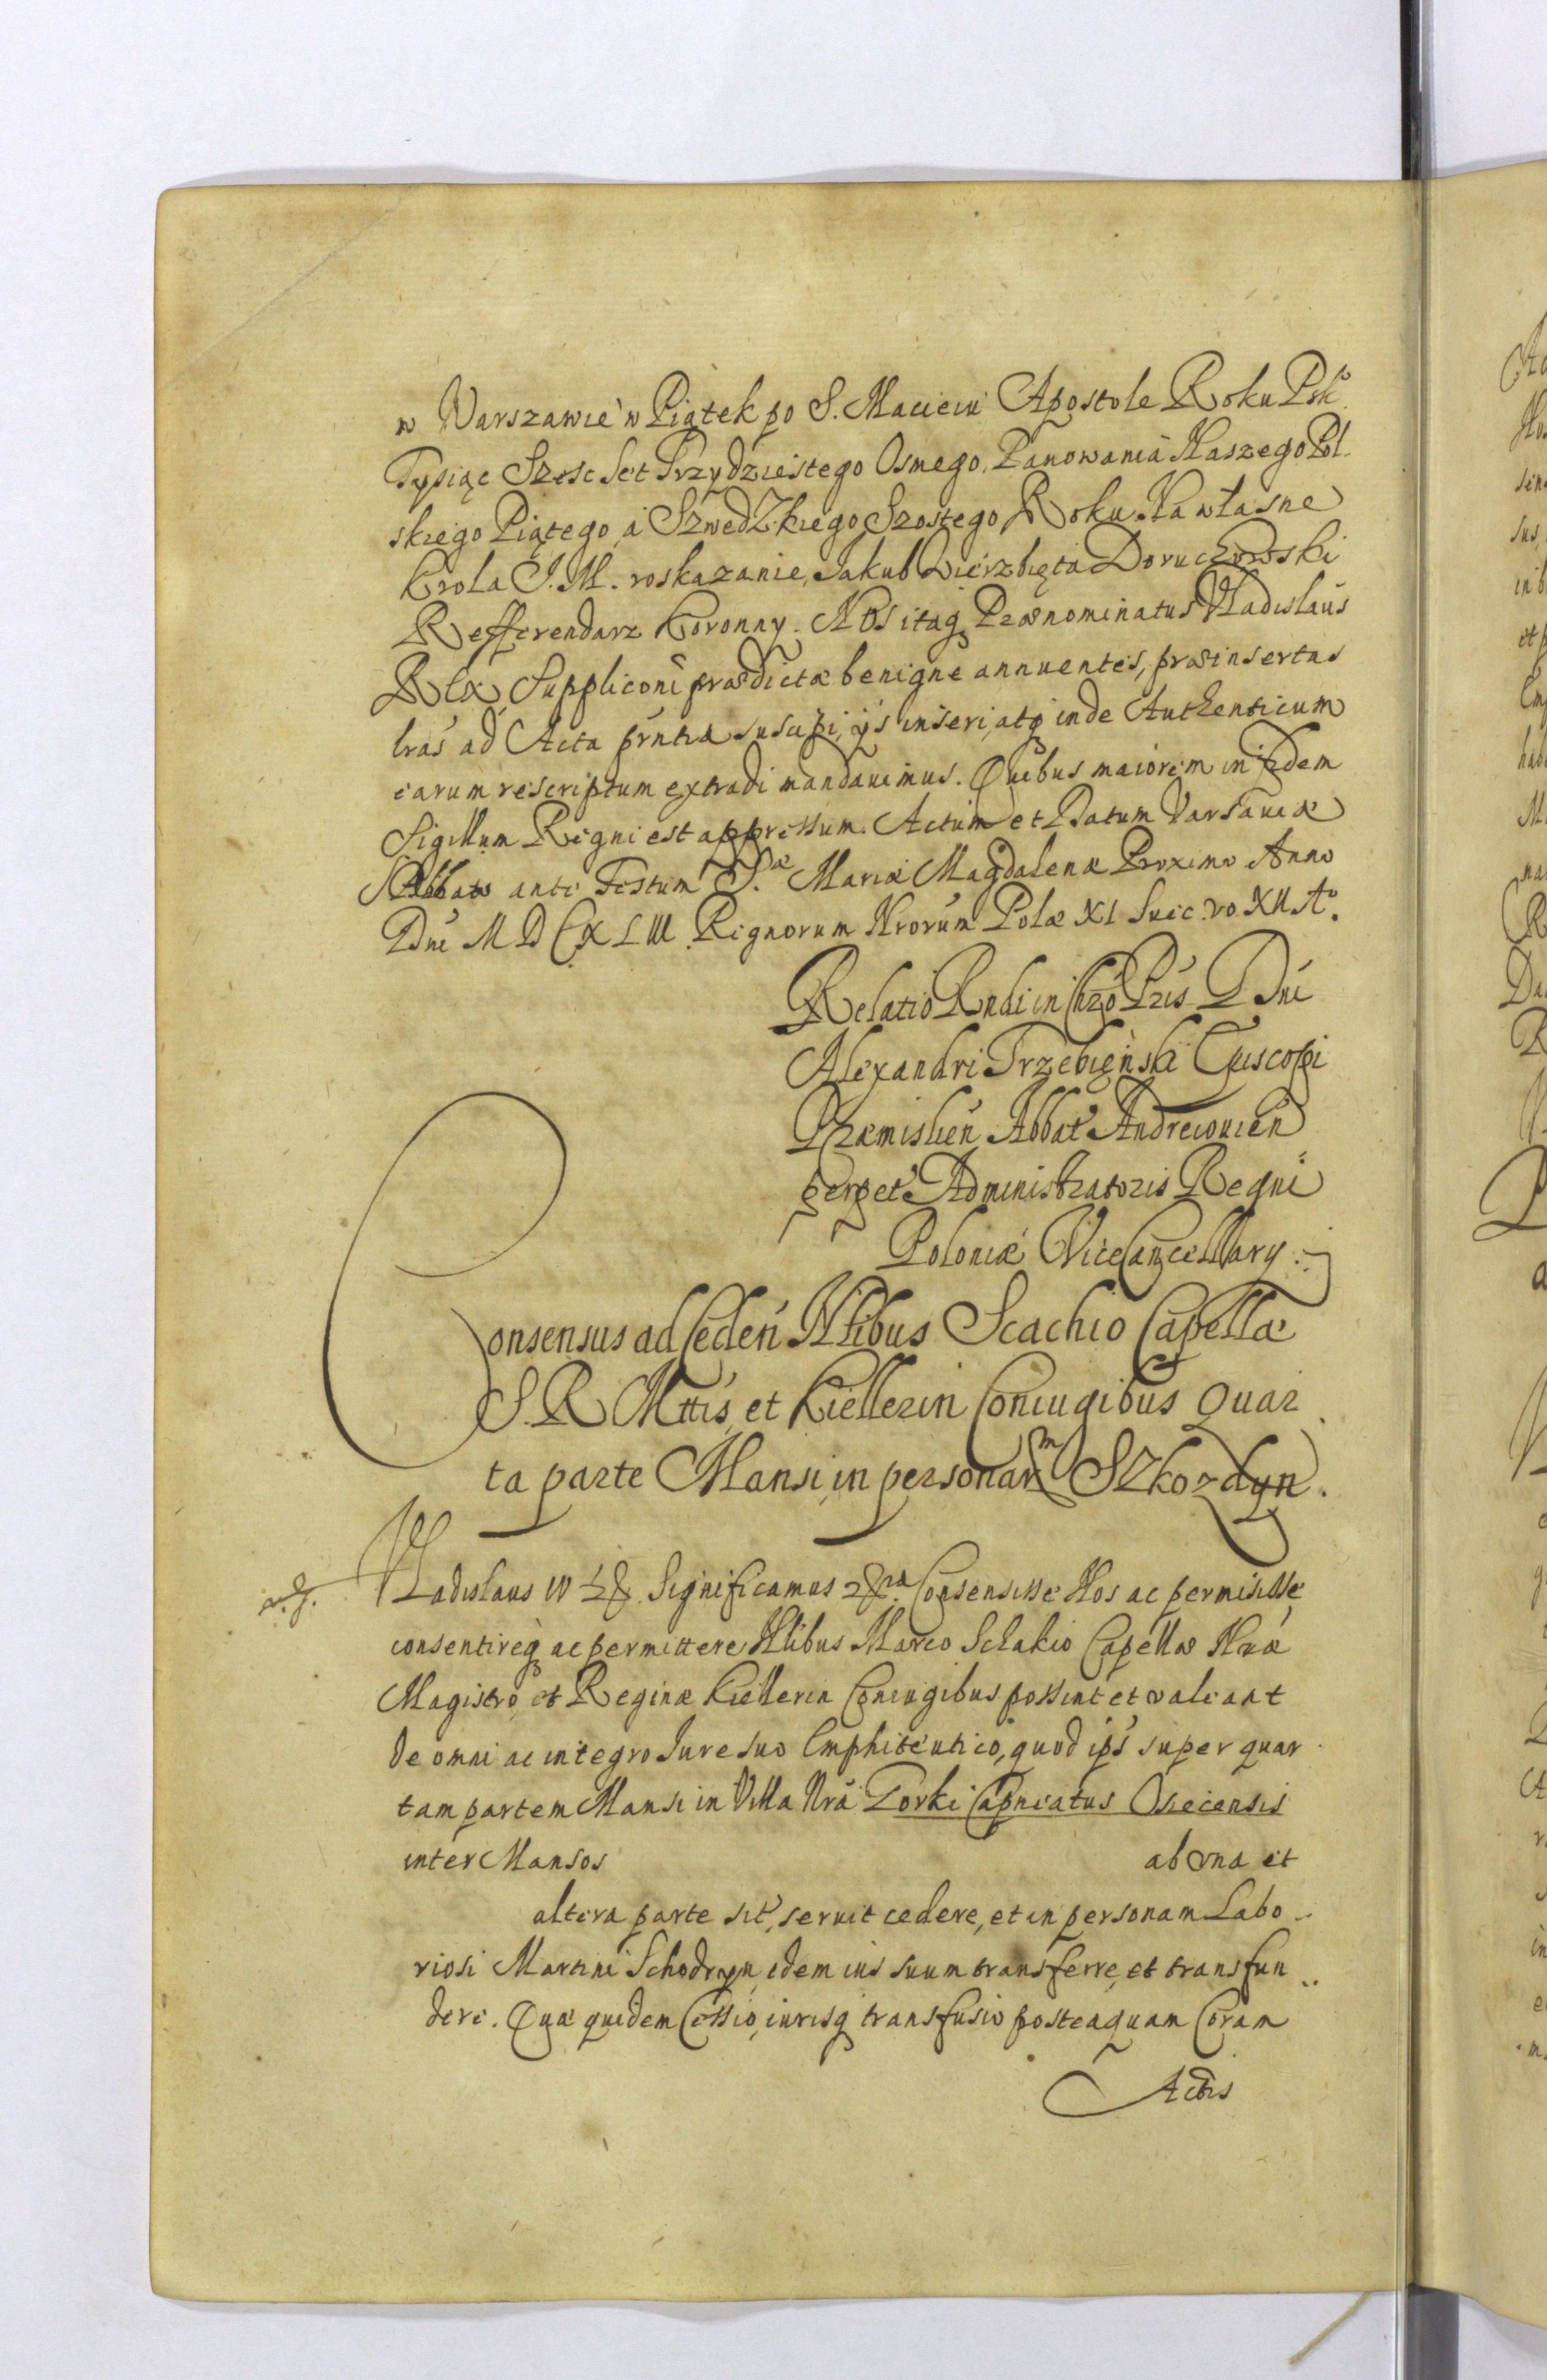 w Warszawie w Piątek po S. Macieiu Apostole Roku Psko
Tysiąc Szesc Set Trzydziestego Osmego, Panowania Naszego Pol
skiego Piątego, a Szwedzkiego Szostego Roku. Na własne
Krola J. M. roskazanie, Jakub Wierzbięta Doruchowski
Refferendarz Koronny. Nos itaq Prænominatus Vladislaus
Rex, Suppliconi prædictæ benigne annuentes, præinsertas
lras ad Acta prntia suscipi, ijs inseri, atq inde Authenticum
earum rescriptum extradi mandauimus. Quibus maiorem in fidem
Sigillum Regni est appressum. Actum et Datum Varsauiæ
Sabbato ante Festum S.æ Mariæ Magdalenæ Proximo Anno
Dni M D C X L III Regnorum Nrorum Polæ XI Suec. vo. XII Ao.
Relatio Rndi in Chro Pris D Dni
Alexandri Trzebięnski Episcopi
Præmislien Abbat Andreiouien
perpet Administratoris Regni
Poloniæ ViceCancellary.
Consensus ad Ceden Nlibus Scachio Capellæ
S. R. Mttis, et Kiellerin Coniugibus Quar
ta parte Mansi, in personam Szkordyn.
Vladislaus IV Significamus Consensisse Nos ac permisisse,
consentireq ac permittere Nlibus Marco Schakio Capellæ Nræ
Magistro, et Reginæ Kiellerin Coniugibus possint et valeant
de omni ac integro Jure suo Emphiteutico, quod ips super quar
tam partem Mansi in Villa Nra Gorki Capneatus Osiecensis
inter Mansos ab vna et
altera parte sit, seruit cedere, et in personam Labo
riosi Martini Schodryn, idem ius suum transferre, et transfun
dere. Quæ quidem Cessio, iurisq transfusio posteaquam Coram
Actis